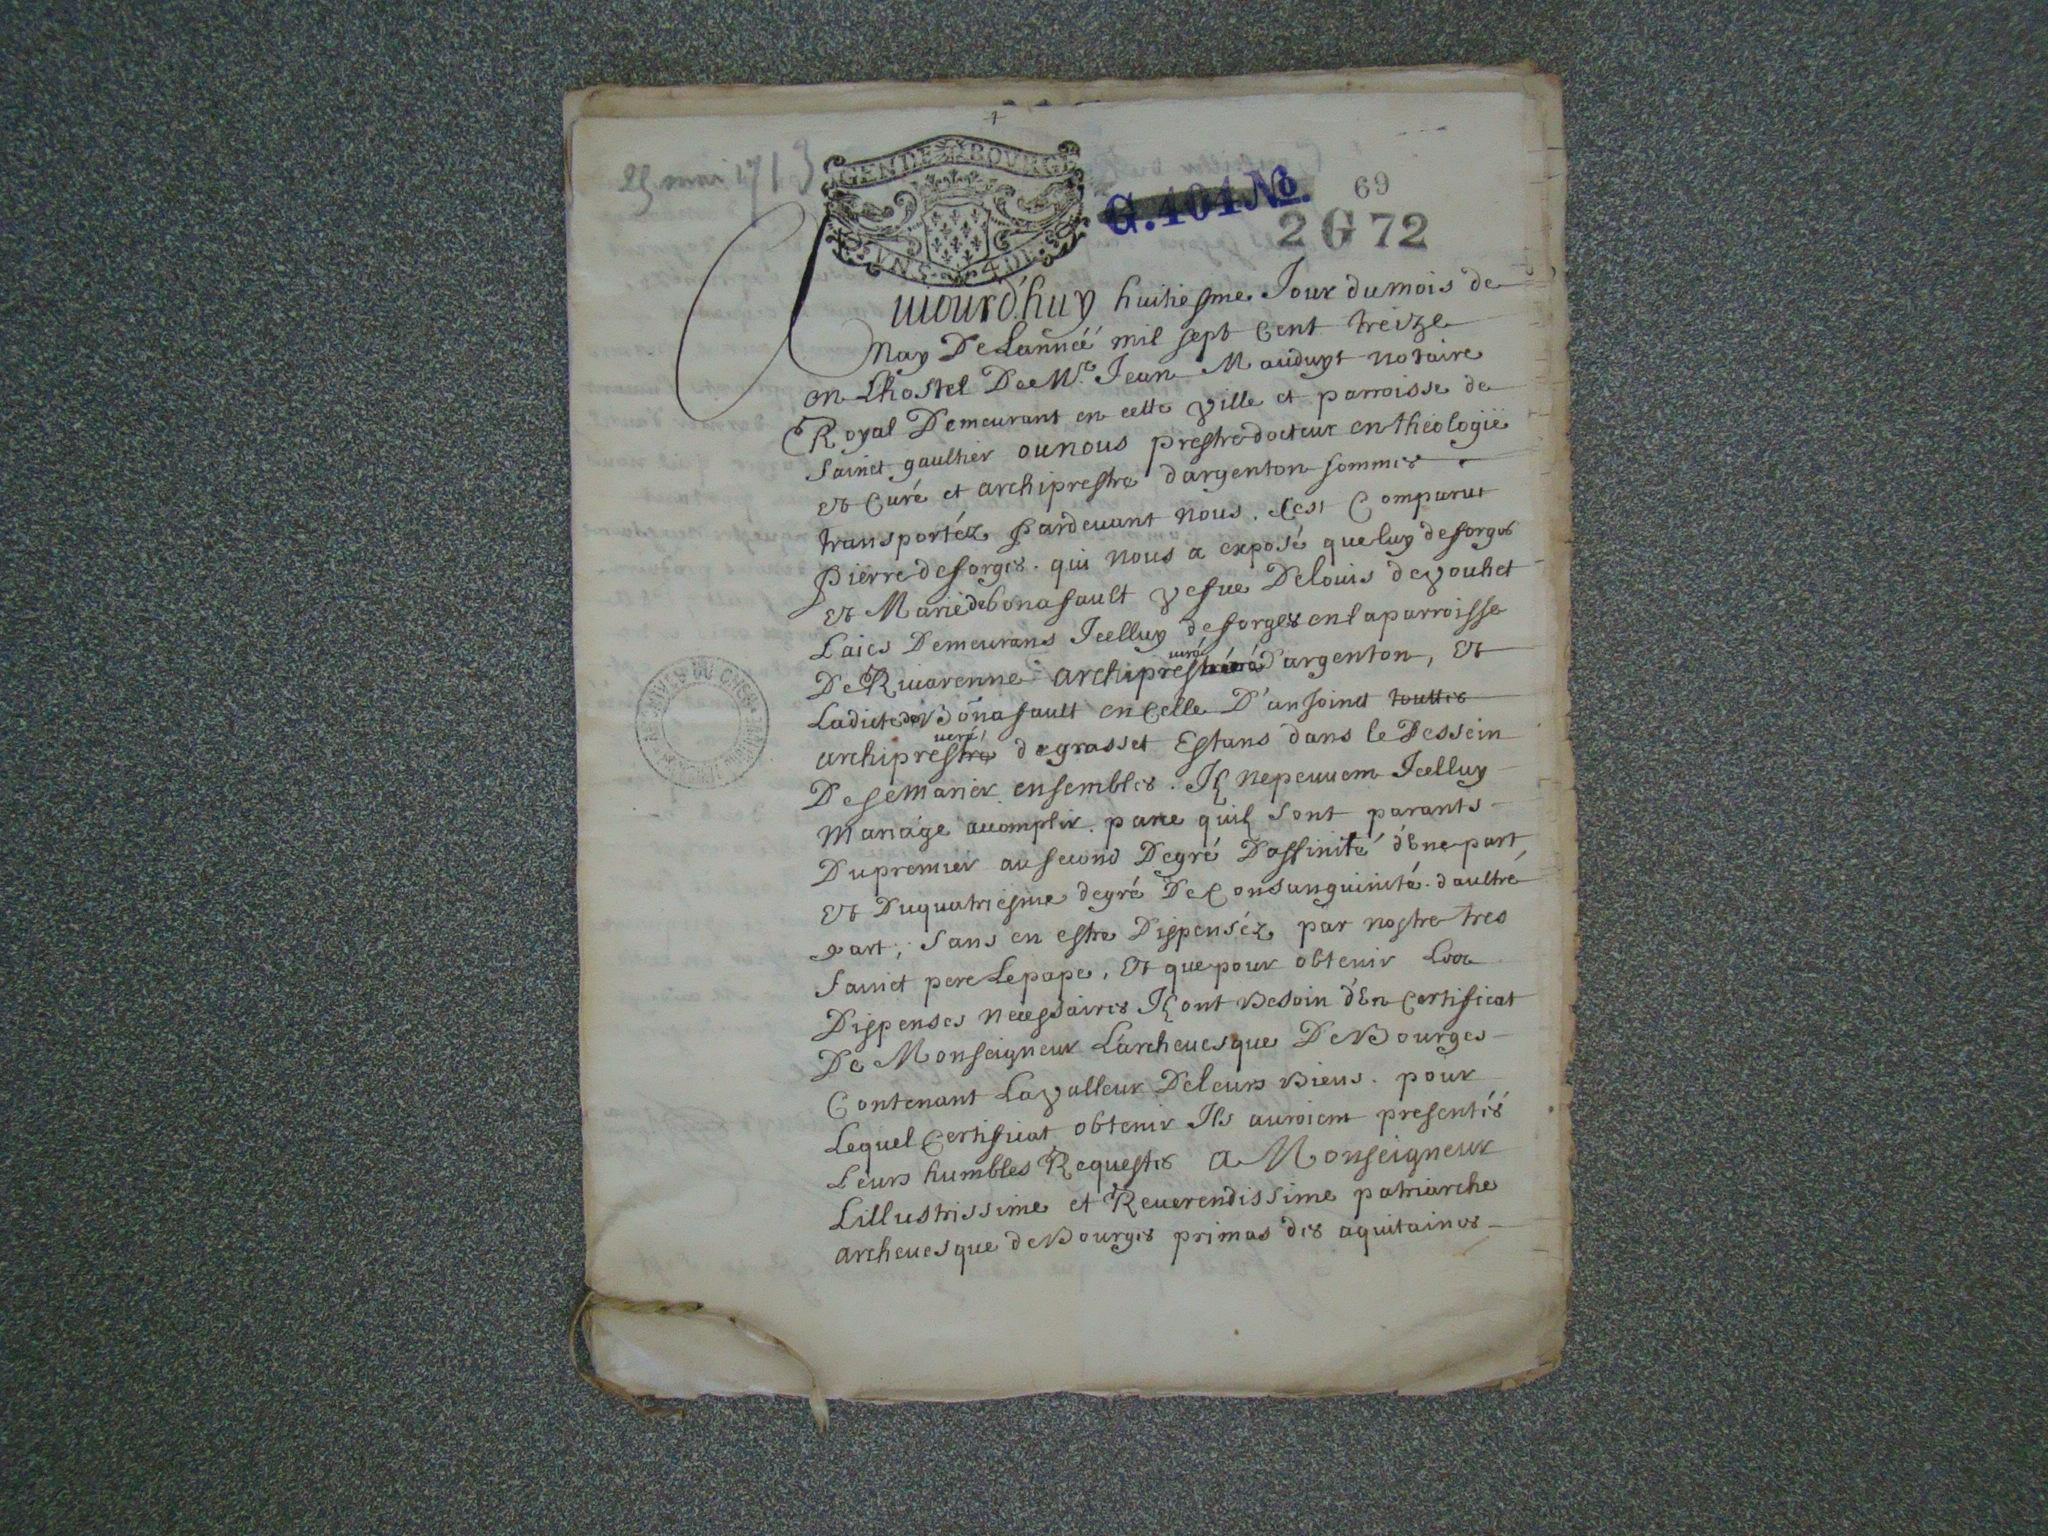 25 mai 1713
GENDE BOVRG
VNS 4 DE
G.404 No.
69
2 G 72
Auiourd'huy huitiesme Jour du mois de
May De Lannéé mil sept Cent treize
en Lhostel De Me. Jean Mauduyt notaire
Royal Demeurant en cette ville et parroisse de
sainct gaultier ou nous prestre docteur en theologie
et Curé et archiprestre d'argenton sommes
transportéz pardeuant nous. C'est Comparut
pierre desforges. qui nous a exposé que luy desforges
et Marie de bonafault vefue De louis de vouhet
Laics Demeurans Jcelluy desforges en la parroisse
De Riuarenne archipresveré d'argenton, et
Ladicte de Bonafault en Celle D'ansoinct touttes
archipresveré de grasset Estans dans le Dessein
De se Marier ensembles. Ilz ne peuuent Jcelluy
Mariage accomplir. parce qu'ilz sont parants
Du premier au second Degré D'affinité d'Vne part
et Du quatriesme degré De Consanguinité. d'aultre
part; sans en estre Dispenséz par nostre tres
sainct pere Le pape, et que pour obtenir Les
Dispenses necessaires Ilz ont Besoin d'Vn Certificat
De Monseigneur L'archeuesque De Bourges
Contenant La valleur De leurs Biens. pour
Lequel Certificat obtenir Ils auroient presentés
Leurs humbles Requestes A Monseigneur
L'illustrissime et Reuerendissime patriarche
archeuesque de Bourges primas des aquitaines